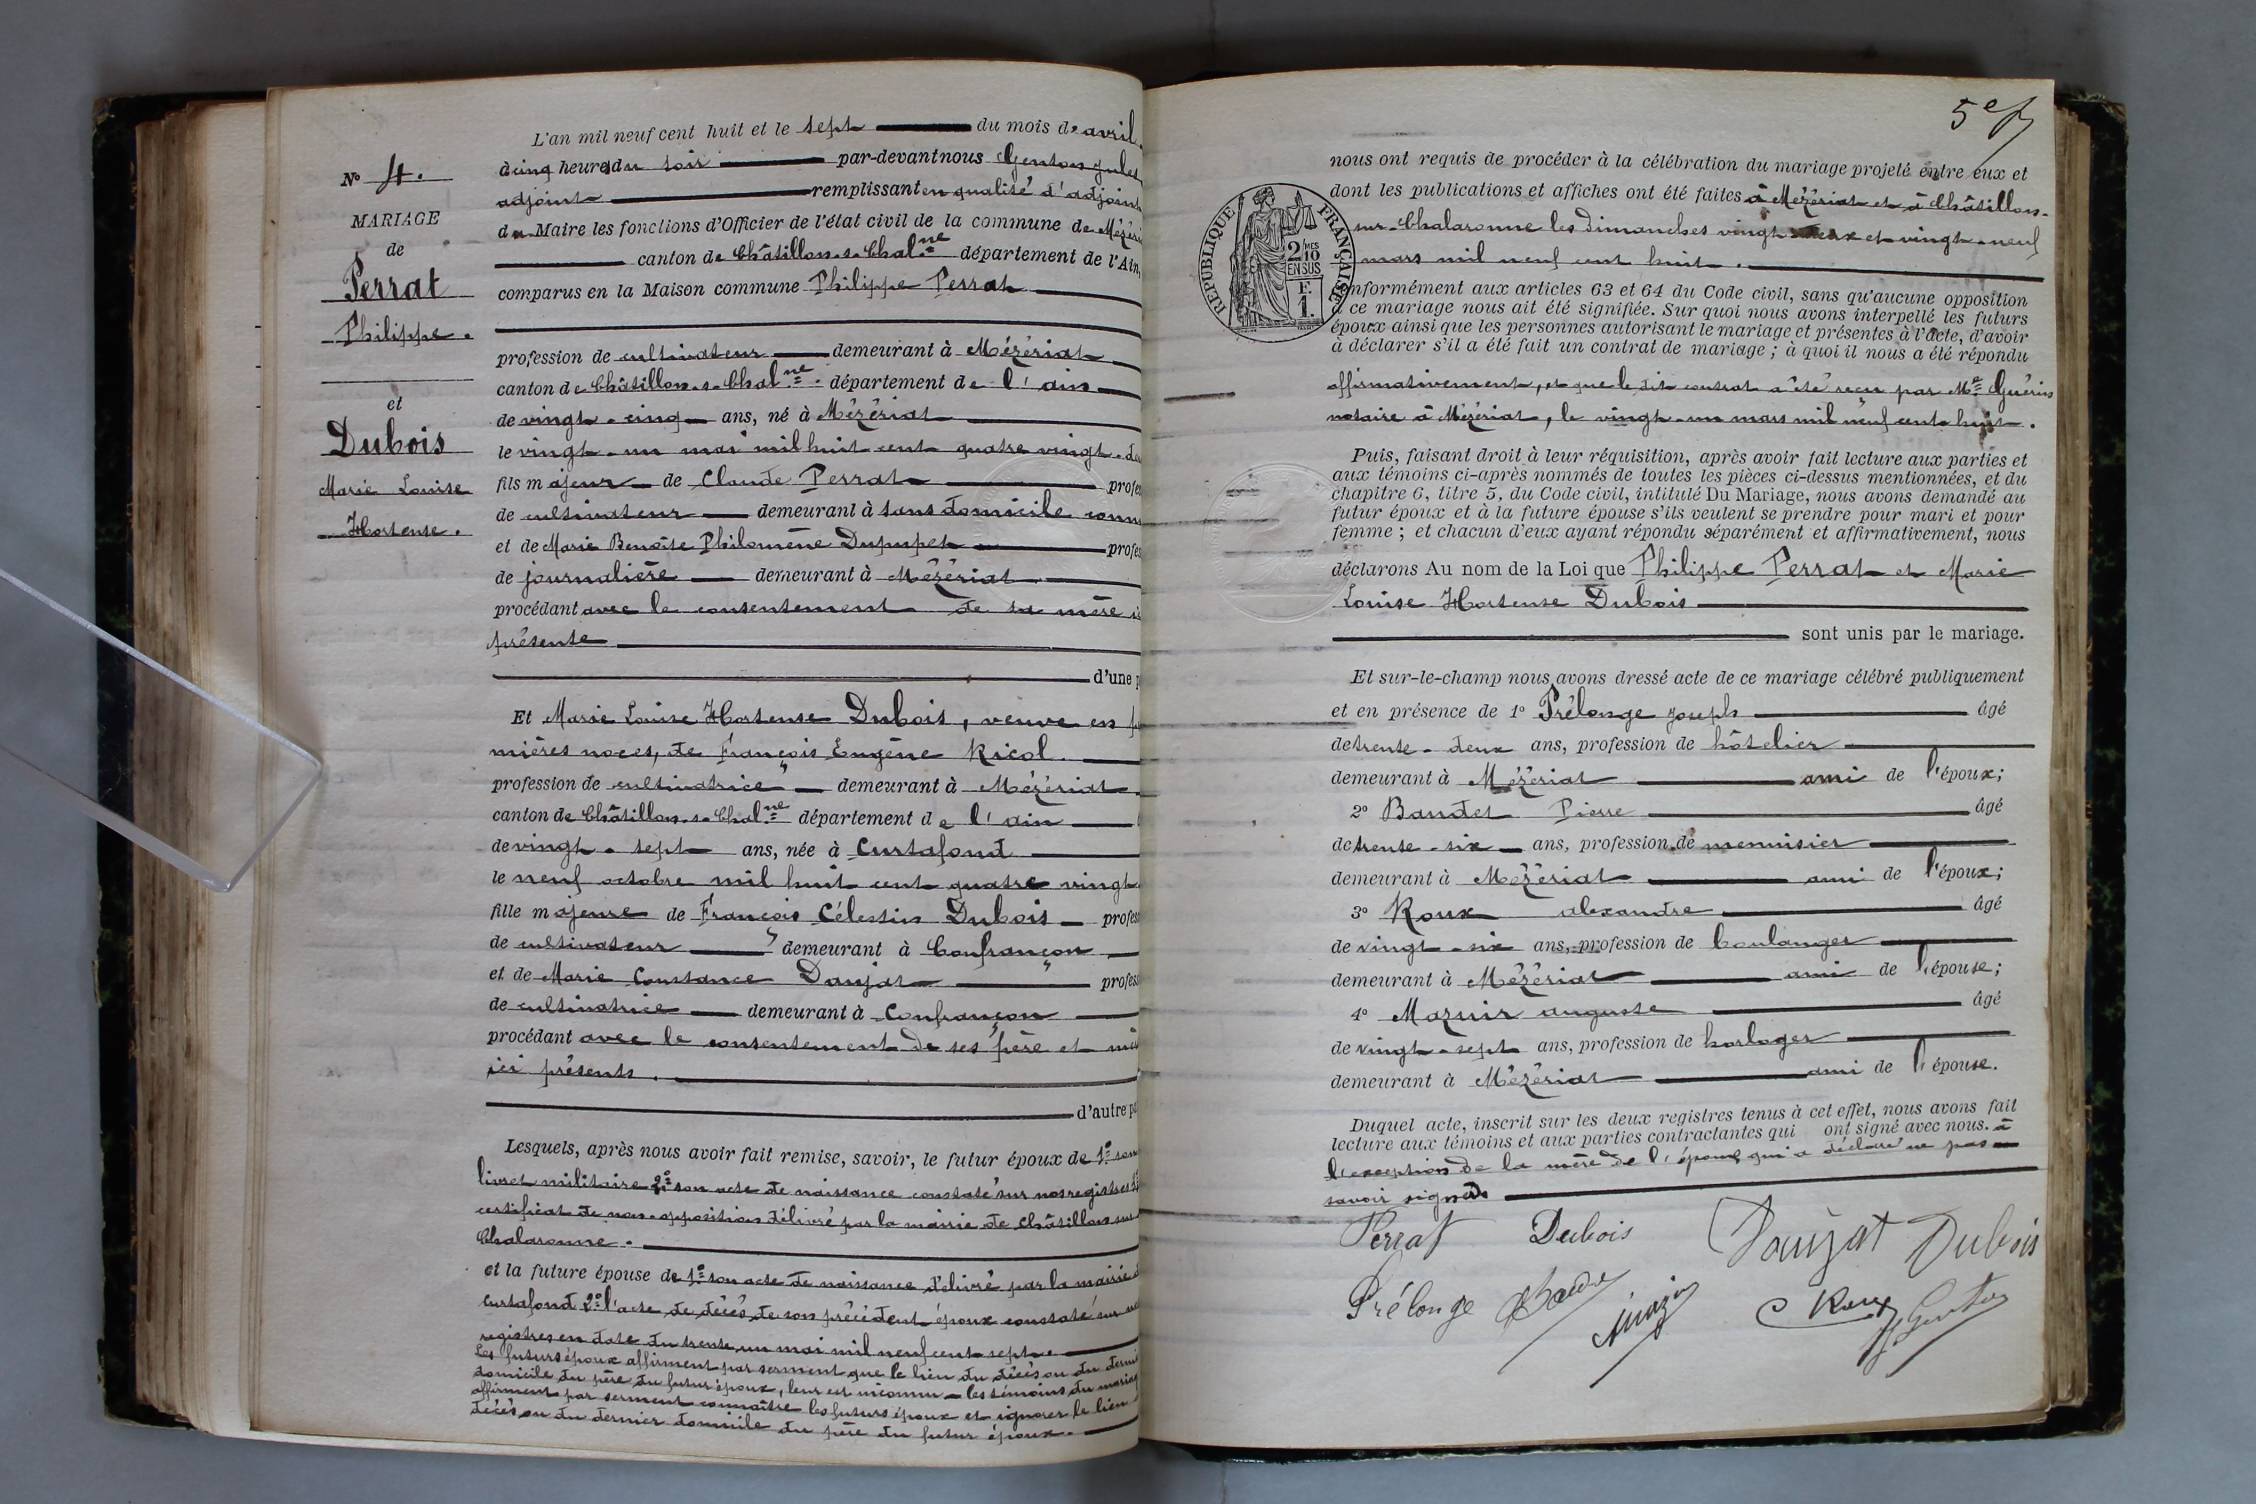 L'an mil neuf cent huit et le sept du mois de avril
à cinq heures du soir par-devant nous Genton Jules
adjoint remplissant en qualité d'adjoint
du Maire les fonctions d'Officier de l'état civil de la commune de Mézéri
canton de Châtillon-s-Chalne département de l'Ain,
comparus en la Maison commune Philippe Perrat
profession de cultivateur demeurant à Mézériat
canton de Châtillon-s-Chalne département de l'ain
de vingt-cinq ans, né à Mézériat
le vingt-un mai mil huit cent quatre vingt-de
fils majeur de Claude Perrat profes
de cultivateur demeurant à sans domicile connu
et de Marie Benoîte Philomène Dupupet profes
de journalière demeurant à Mézériat
procédant avec le consentement de sa mère i
présente
d'une p
Et Marie Louise Hortense Dubois, veuve en p
mières noces, de François Eugène Ricol.
profession de cultivatrice demeurant à Mézériat
canton de Châtillon-s-Chalne département de l'ain
de vingt-sept ans, née à Curtafond
le neuf octobre mil huit cent quatre vingt
fille majeure de François Célestin Dubois profes
de cultivateur demeurant à Confrançon
et de Marie Constance Daujat profes
de cultivatrice demeurant à Confrançon
procédant avec le consentement de ses père et mè
ici présents.
d'autre pa
Lesquels, après nous avoir fait remise, savoir, le futur époux de 1° son
livret militaire 2° son acte de naissance constaté sur nos registres
certificat de non-opposition délivré par la mairie de Châtillon sur
Chalaronne.
et la future épouse de 1° son acte de naissance délivré par la mairie d
Curtafond 2° l'acte de décès de son précédent époux constaté sur
registres en date du trente un mai mil neuf cent sept.
Les futurs époux affirment par serment que le lieu du décès ou du derni
domicile du père du futur époux, leur est inconnu - les témoins du mariag
affirment par serment connaître les futurs époux et ignorer le lieu
décès ou du dernier domicile du père du futur époux.
N° 4.
MARIAGE
de
Perrat
Philippe.
et
Dubois
Marie Louise
Hortense.
5e f
nous ont requis de procéder à la célébration du mariage projeté entre eux et
dont les publications et affiches ont été faites à Mézériat et à Châtillon-
sur-Chalaronne les dimanches vingt-deux et vingt-neuf
mars mil neuf cent huit.
RÉPUBLIQUE FRANÇAISE
2/10 MES
EN SUS
F.
1.
nformément aux articles 63 et 64 du Code civil, sans qu'aucune opposition
à ce mariage nous ait été signifiée. Sur quoi nous avons interpellé les futurs
époux ainsi que les personnes autorisant le mariage et présentes à l'acte, d'avoir
à déclarer s'il a été fait un contrat de mariage ; à quoi il nous a été répondu
affirmativement, et que le dit contrat a été reçu par Me Guérin
notaire à Mézériat, le vingt-un mars mil neuf cent huit.
Puis, faisant droit à leur réquisition, après avoir fait lecture aux parties et
aux témoins ci-après nommés de toutes les pièces ci-dessus mentionnées, et du
chapitre 6, titre 5, du Code civil, intitulé Du Mariage, nous avons demandé au
futur époux et à la future épouse s'ils veulent se prendre pour mari et pour
femme ; et chacun d'eux ayant répondu séparément et affirmativement, nous
déclarons Au nom de la Loi que Philippe Perrat et Marie
Louise Hortense Dubois
sont unis par le mariage.
Et sur-le-champ nous avons dressé acte de ce mariage célébré publiquement
et en présence de 1° Prélonge Joseph âgé
de trente-deux ans, profession de hôtelier
demeurant à Mézériat ami de l'époux;
2° Baudet Pierre âgé
de trente-six ans, profession de menuisier
demeurant à Mézériat ami de l'époux;
3° Roux alexandre âgé
de vingt-six ans, profession de boulanger
demeurant à Mézériat ami de l'épouse;
4° Mazuir auguste âgé
de vingt-sept ans, profession de horloger
demeurant à Mézériat ami de l'épouse.
Duquel acte, inscrit sur les deux registres tenus à cet effet, nous avons fait
lecture aux témoins et aux parties contractantes qui ont signé avec nous. à
l'exception de la mère de l'époux qui a déclaré ne pas
savoir signer
Perrat Dubois Daujat Dubois
Prélonge Roux Genton